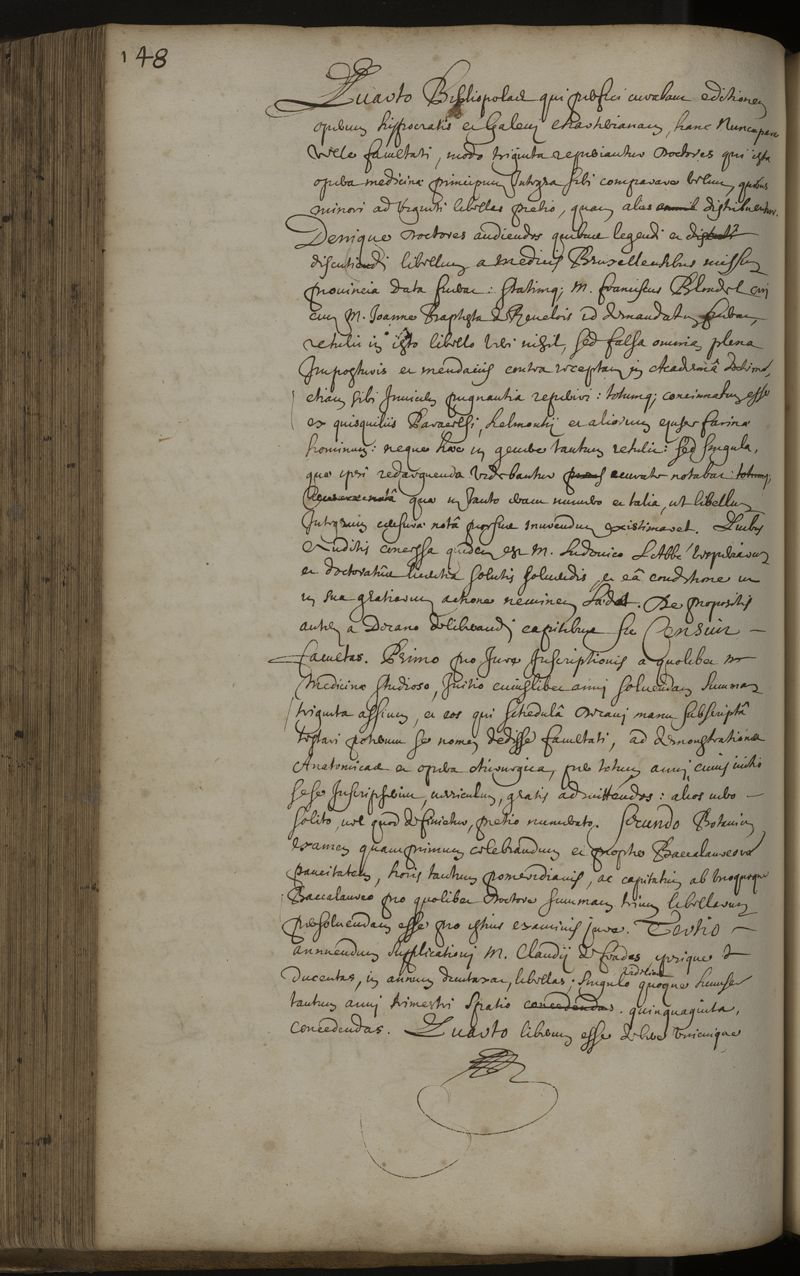 148
Quarto Bibliopolae qui præfici curabant editionem
operum hippocratis et Galeni charterianam, hanc Nuncupare
velle facultati, modo triginta repriantur Doctores qui ista
opera medicinæ principum Integra sibi comparare velint, quibus
minori ad viginti libellas pretio, quam aliis distribuentur.
Denique Doctores audiendos quibus legendi et
discutiendi libellum a medicis Bruxellensibus missum
provincia data fuerat: statimq; M. franciscus Blondel cui
cum M. Joanne Baptista de Revelois id demandatum fuerat,
retulit in isto libello veri nihil, sed falsa omnia, plena
Imposturis et mendaciis contra receptam in Academiâ doctrinam,
etiam sibi Invicem pugnantia reperiri: totumq; concinnatum esse
ex quisquiliis Paracelsi, helmontij et aliorum ejusce farinæ
hominum: neque hæc in genere tantum retulit: sed singula,
quæ ipsi redarguenda videbantur accurate notabat: totumq;
quæ in tanto erant numero et talia, ut libellum
Integrum censuræ notâ prorsus inurendum existimaret. Quibus
Auditis concessa quidem est M. Ludovico L'Abbé vesperiarum
et doctoratûs licentia solutis solvendis, et eâ conditione ut
in sua gratiarum actione neminem lædat. De propositis
autem a Decano deliberandi capitibus sic Censuit
facultas. Primo pro Jure Inscriptionis a quolibet
Medicinæ studioso, Initio cuiuslibet anni solvendam summam
triginta assium, et eos qui schedulâ Decani manu subscriptâ
testari poterunt se nomen dedisse facultati, ad demonstrationes
Anatomicas et opera chirurgica, per totum anni, cuius initio
sese Inscripserint, curriculum, gratis admittendos: alios vero
solito, vel quod definietur, pretio numerato. Secundo Botanicum
examen quamprimum celebrandum et propter Baccalaureorum
paucitatem, horis tantum pomeridianis, ac capitatim ab unoquoque
Baccalaureo pro quolibet Doctore summam trium libellarum
persolvendam esse pro istius examinis jure. Tertio
annuendum supplicationi M. Claudij de frades, ipsique
Ducentas, in annum dumtaxat, libellas; singulo quoque
tantum anni trimestri spatio concedendas. quinquaginta,
concedendas. Quarto liberum esse debere unicuique